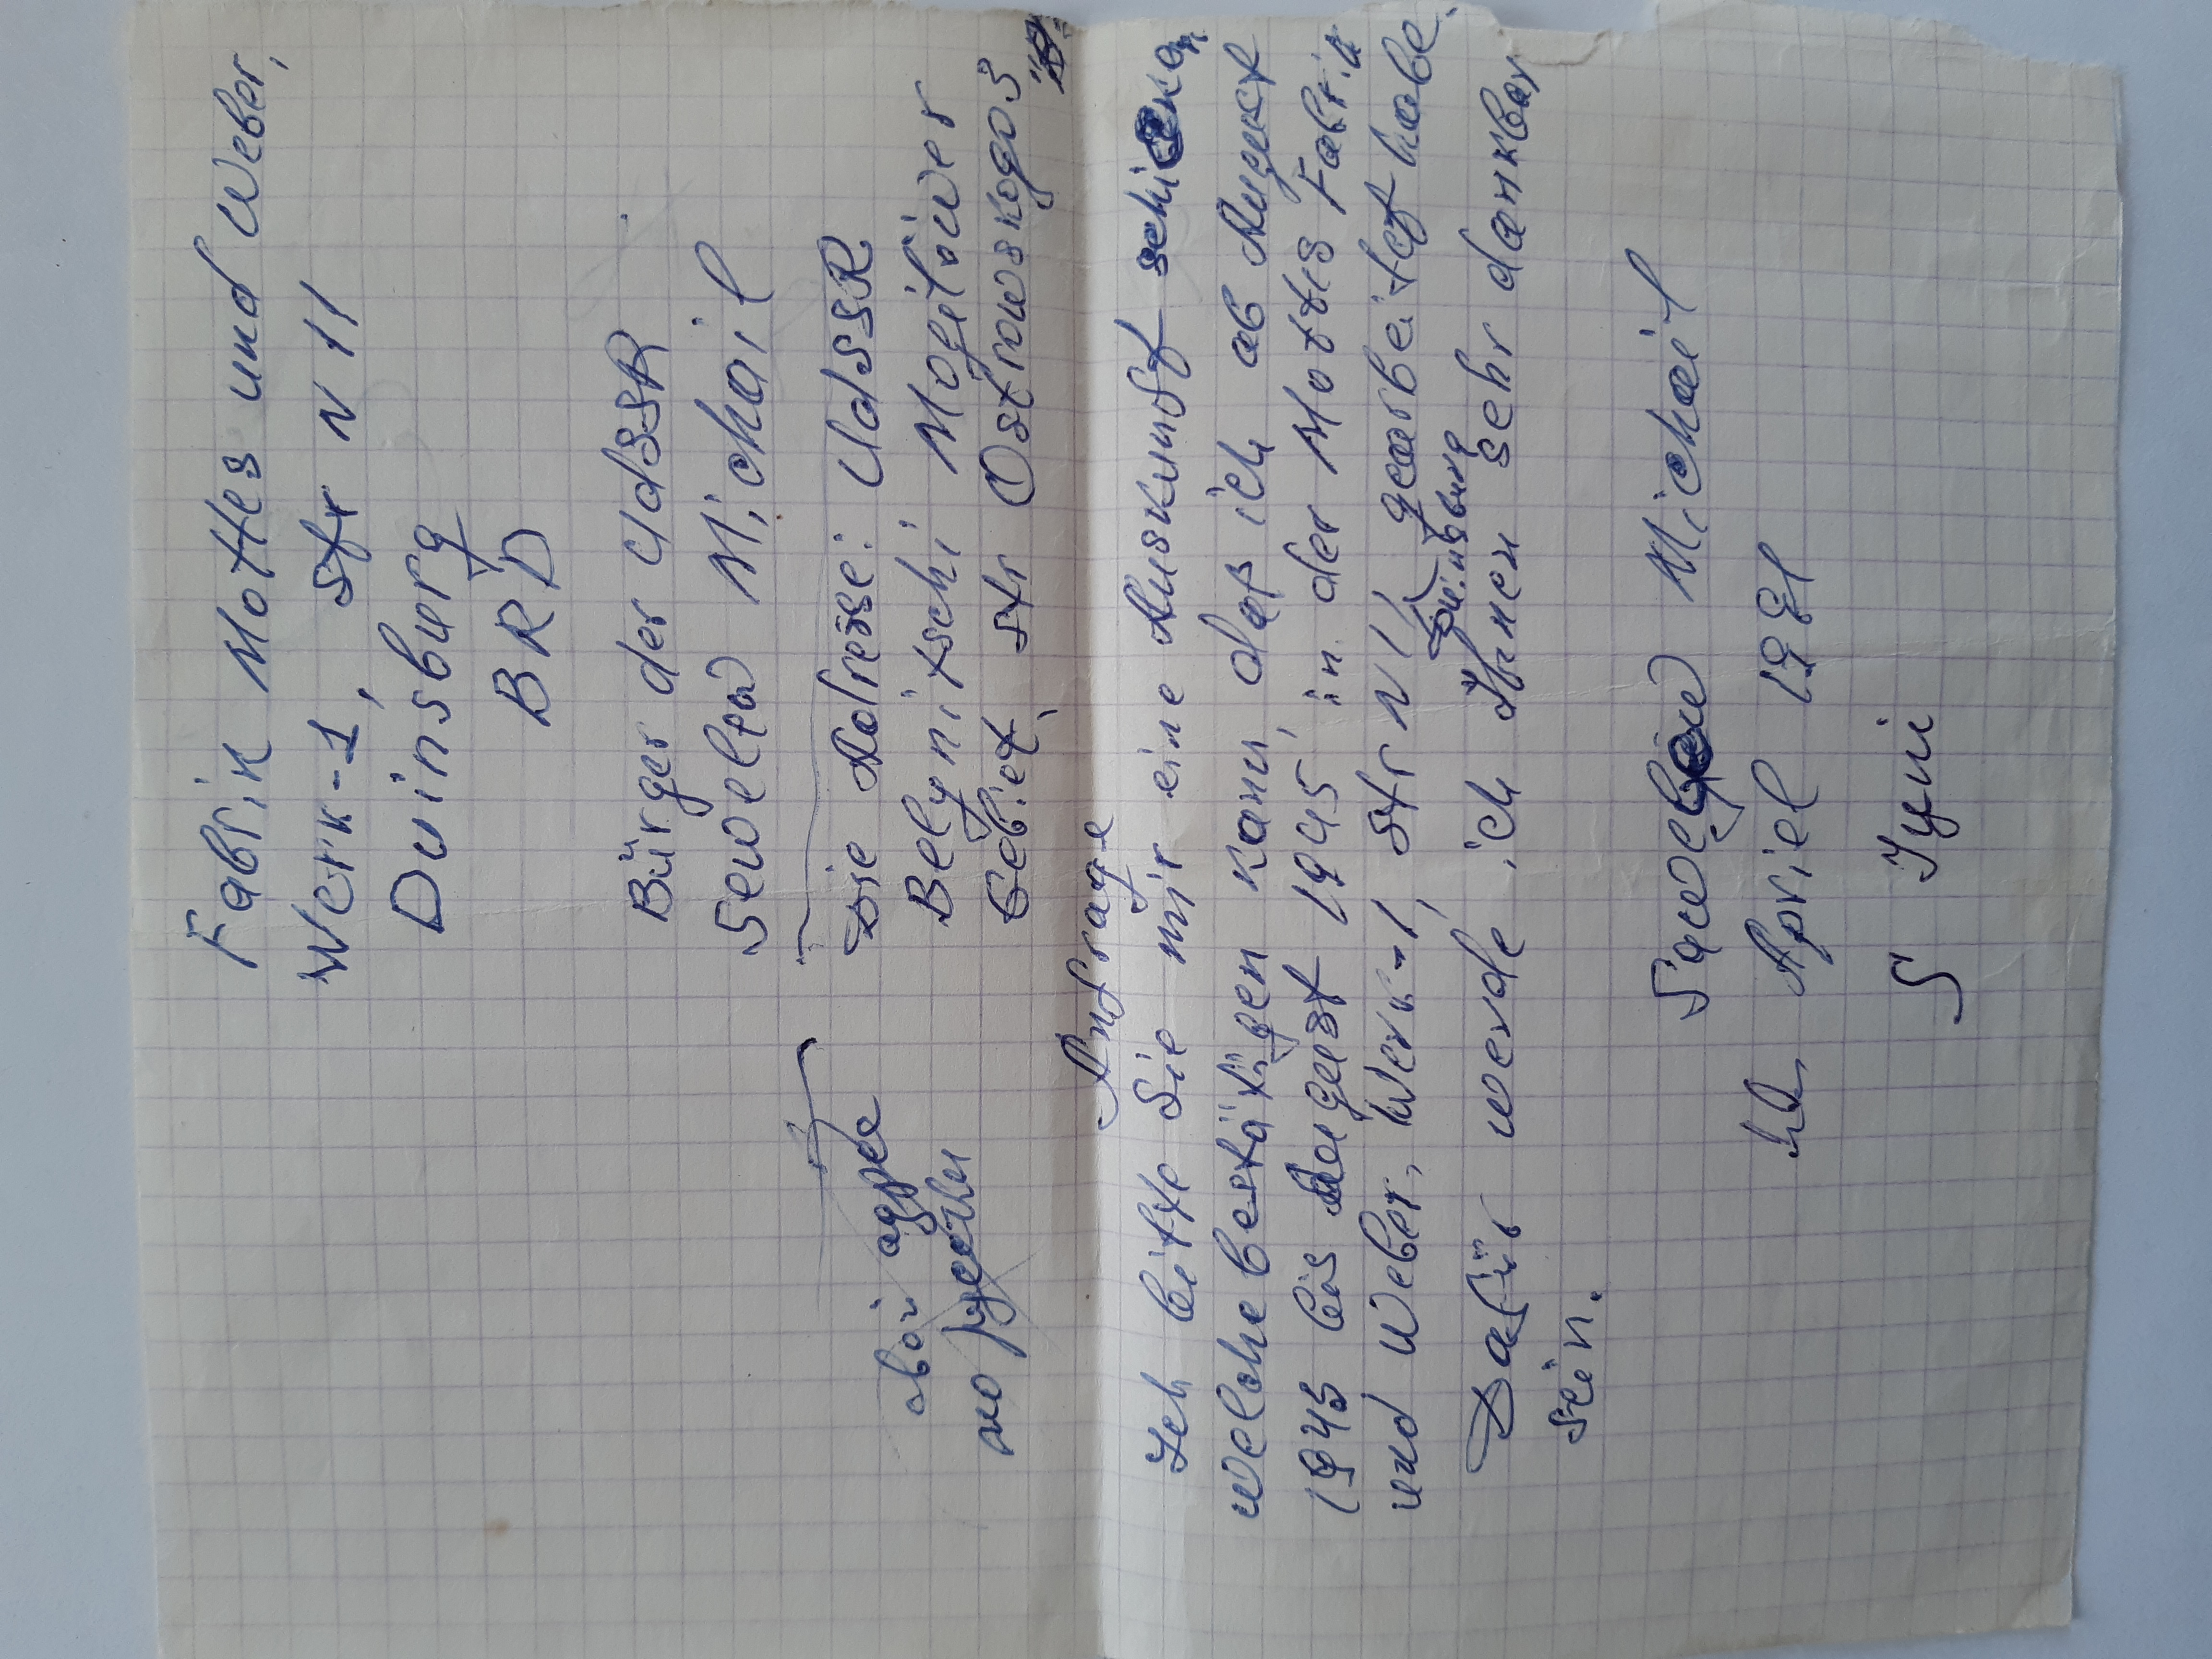 Fabrik Mottes und Weber,
Werk-1, Str N 11
Duinsburg
BRD
Bürger der UdSSR
Sewolño Michail
Die Adresse: UdSSR
Belynitschi Mogilöwer
Gebiet, str Ostrowskogo 3
свой адрес
по русски
Anfrage
Ich bitte Sie mir eine Auskunft schicken,
welche bestätigen kann, daß ich ab August
1943 bis Mergest 1945, in der Mottes Fabrik
und Weber, Werk-1, Str N 11 gearbeitet habe.
Duinsburg
Dafür werde ich Ihnen sehr dankbar
sein.
Michail
Apriel 1991
5 Juni